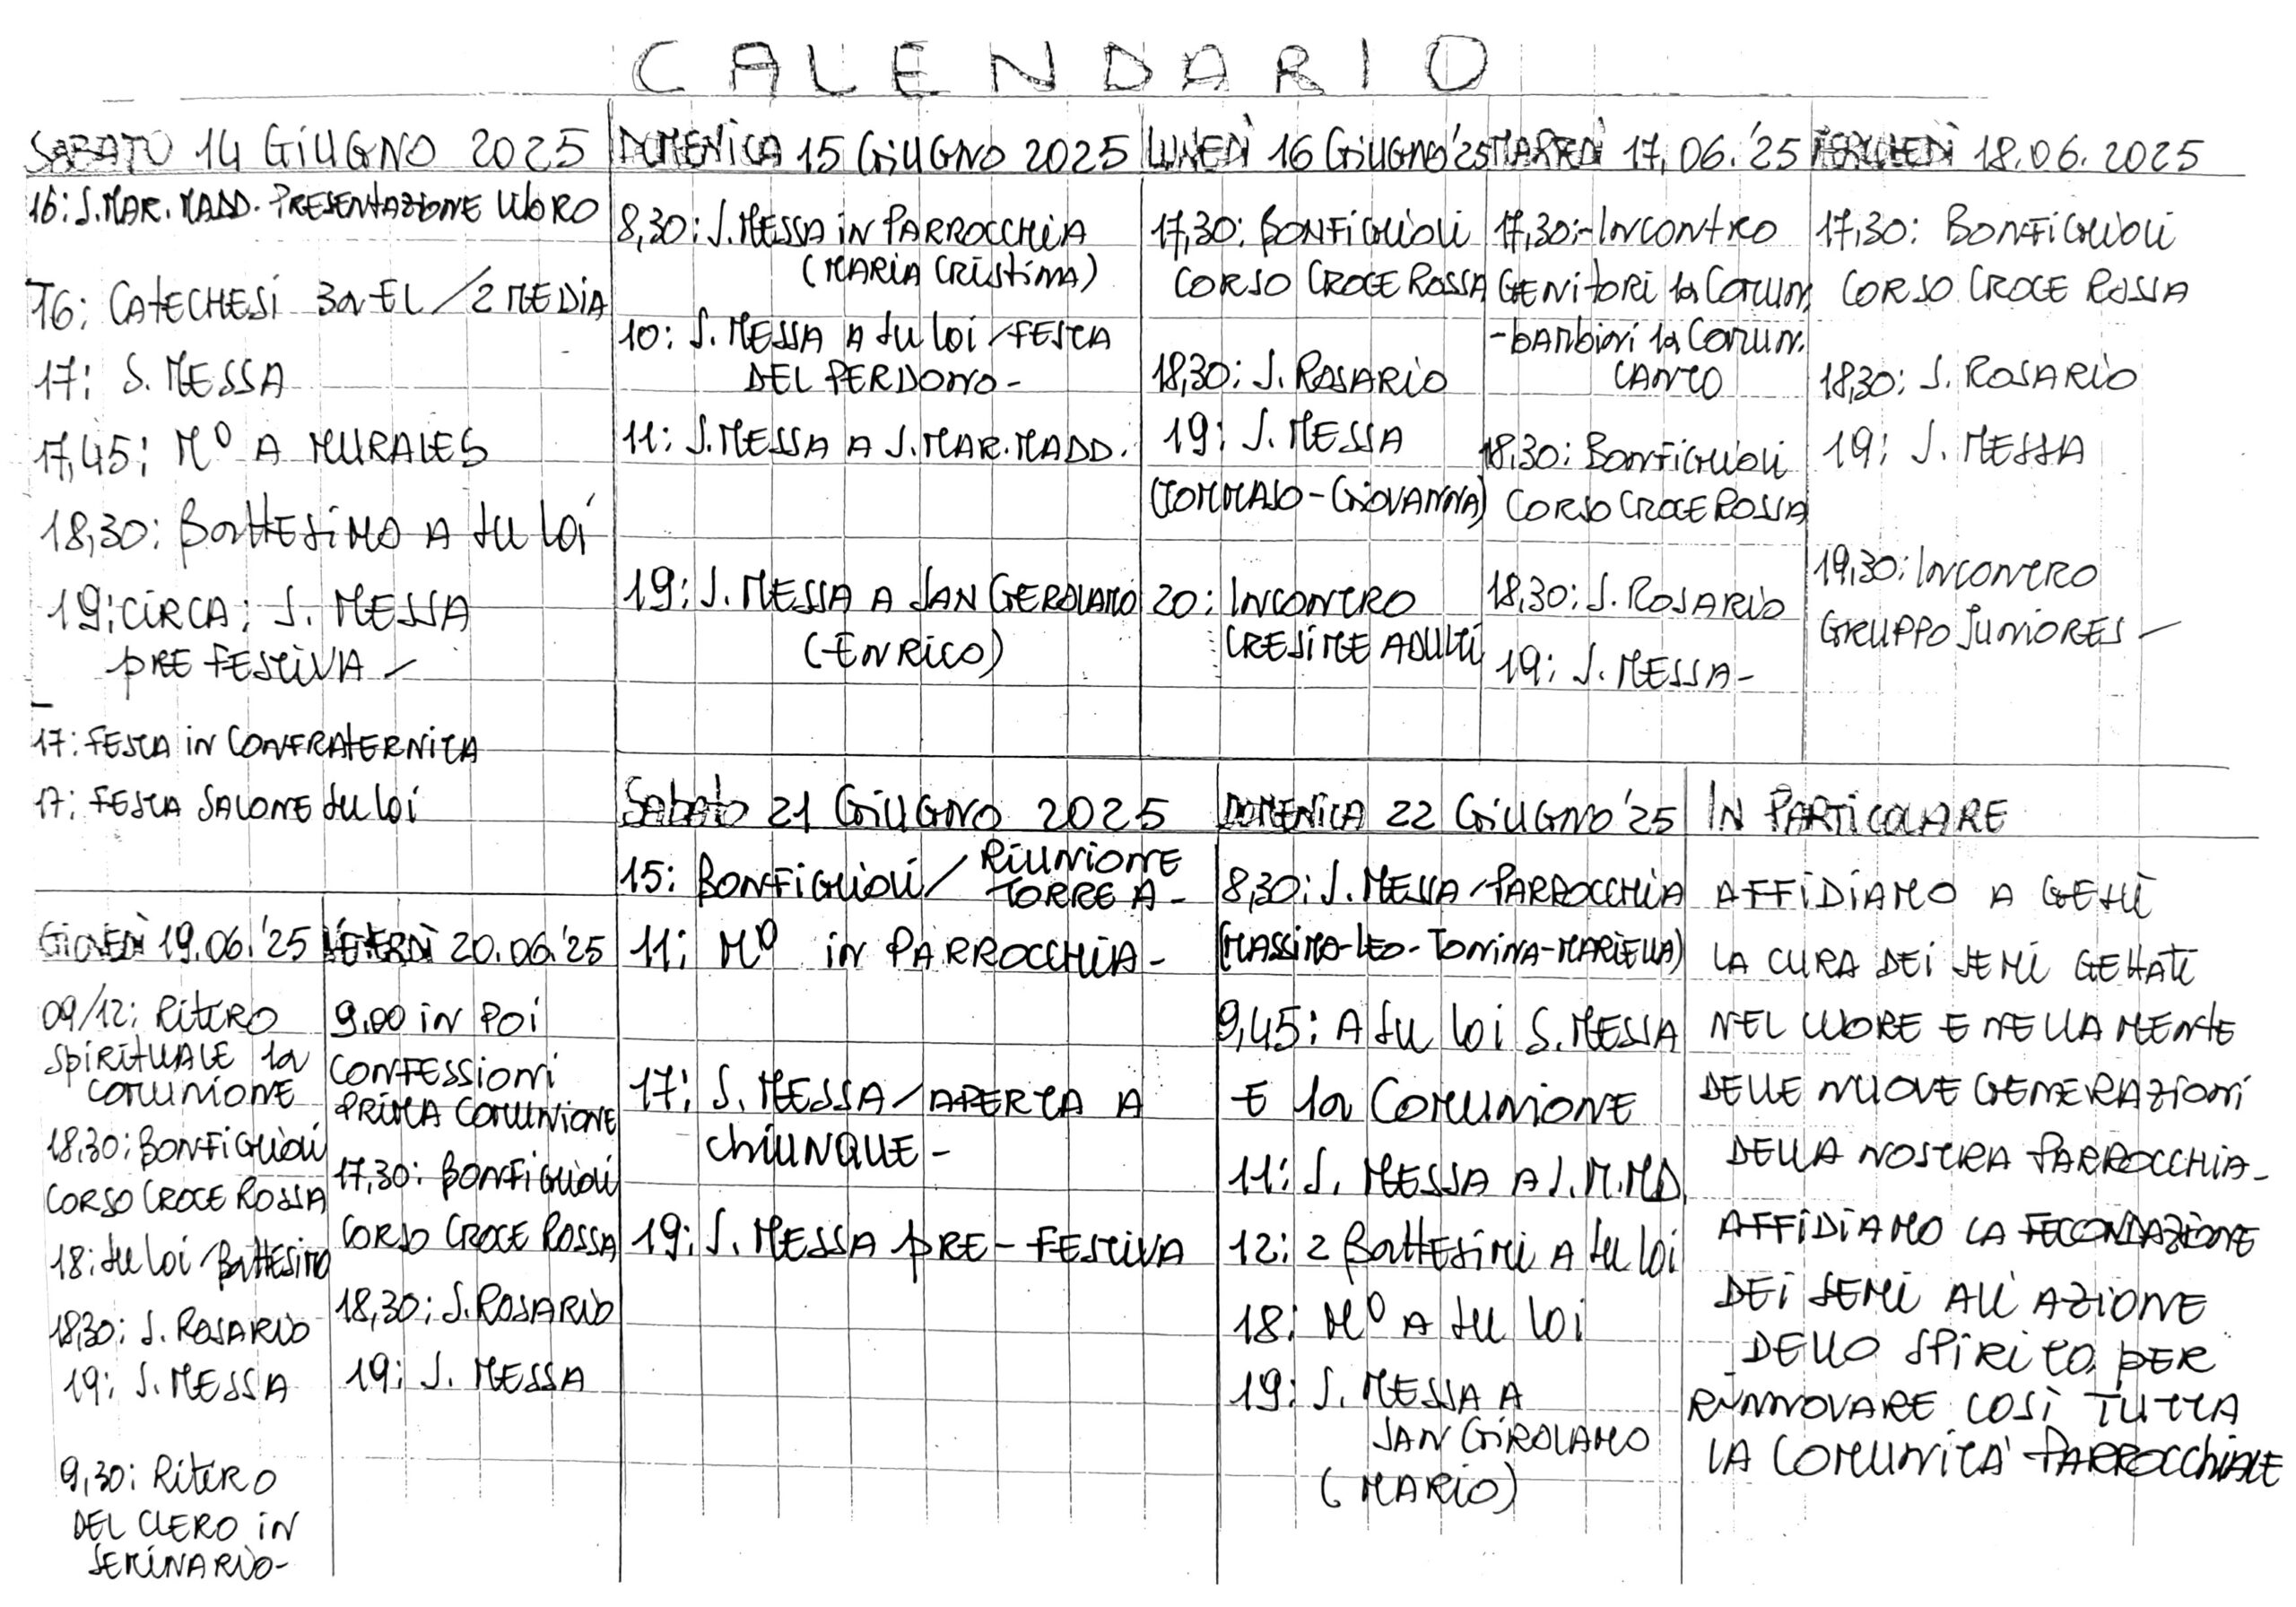 CALENDARIO
SABATO 14 GIUGNO 2025
16: S. MAR. MADD. PRESENTAZIONE LIBRO
16: CATECHESI 3a EL / 2 MEDIA
17: S. MESSA
17,45: Mº A MURALES
18,30: BATTESIMO A SU LOI
19: CIRCA: S. MESSA
PRE FESTIVA -
17: FESTA IN CONFRATERNITA
17: FESTA SALONE SU LOI
DOMENICA 15 GIUGNO 2025
8,30: S. MESSA IN PARROCCHIA
(MARIA CRISTINA)
10: S. MESSA A SU LOI / FESTA
DEL PERDONO -
11: S. MESSA A S. MAR. MADD.
19: S. MESSA A SAN GEROLAMO
(ENRICO)
LUNEDÌ 16 GIUGNO '25
17,30: BONFIGLIOLI
CORSO CROCE ROSSA
18,30: S. ROSARIO
19: S. MESSA
(TOMMASO - GIOVANNA)
20: INCONTRO
CRESIME ADULTI
MARTEDÌ 17.06.'25
17,30: - INCONTRO
GENITORI 1a COMUN.
- BAMBINI 1a COMUN.
CANTO
18,30: BONFIGLIOLI
CORSO CROCE ROSSA
18,30: S. ROSARIO
19: S. MESSA -
MERCOLEDÌ 18.06.2025
17,30: BONFIGLIOLI
CORSO CROCE ROSSA
18,30: S. ROSARIO
19: S. MESSA
19,30: INCONTRO
GRUPPO JUNIORES -
GIOVEDÌ 19.06.'25
09/12: RITIRO
SPIRITUALE 1a
COMUNIONE
18,30: BONFIGLIOLI
CORSO CROCE ROSSA
18: SU LOI / BATTESIMO
18,30: S. ROSARIO
19: S. MESSA
9,30: RITIRO
DEL CLERO IN
SEMINARIO -
VENERDÌ 20.06.'25
9,00 IN POI
CONFESSIONI
PRIMA COMUNIONE
17,30: BONFIGLIOLI
CORSO CROCE ROSSA
18,30: S. ROSARIO
19: S. MESSA
SABATO 21 GIUGNO 2025
15: BONFIGLIOLI / RIUNIONE
TORRE A -
11: Mº IN PARROCCHIA -
17: S. MESSA / APERTA A
CHIUNQUE -
19: S. MESSA PRE - FESTIVA
DOMENICA 22 GIUGNO '25
8,30: S. MESSA / PARROCCHIA
(MASSIMA - LEO - TONINA - MARIELLA)
9,45: A SU LOI S. MESSA
E 1a COMUNIONE
11: S. MESSA A S. M. MD.
12: 2 BATTESIMI A SU LOI
18: Mº A SU LOI
19: S. MESSA A
SAN GIROLAMO
(MARIO)
IN PARTICOLARE
AFFIDIAMO A GESÙ
LA CURA DEI SEMI GETTATI
NEL CUORE E NELLA MENTE
DELLE NUOVE GENERAZIONI
DELLA NOSTRA PARROCCHIA -
AFFIDIAMO LA FECONDAZIONE
DEI SEMI ALL'AZIONE
DELLO SPIRITO, PER
RINNOVARE COSÌ TUTTA
LA COMUNITÀ PARROCCHIALE